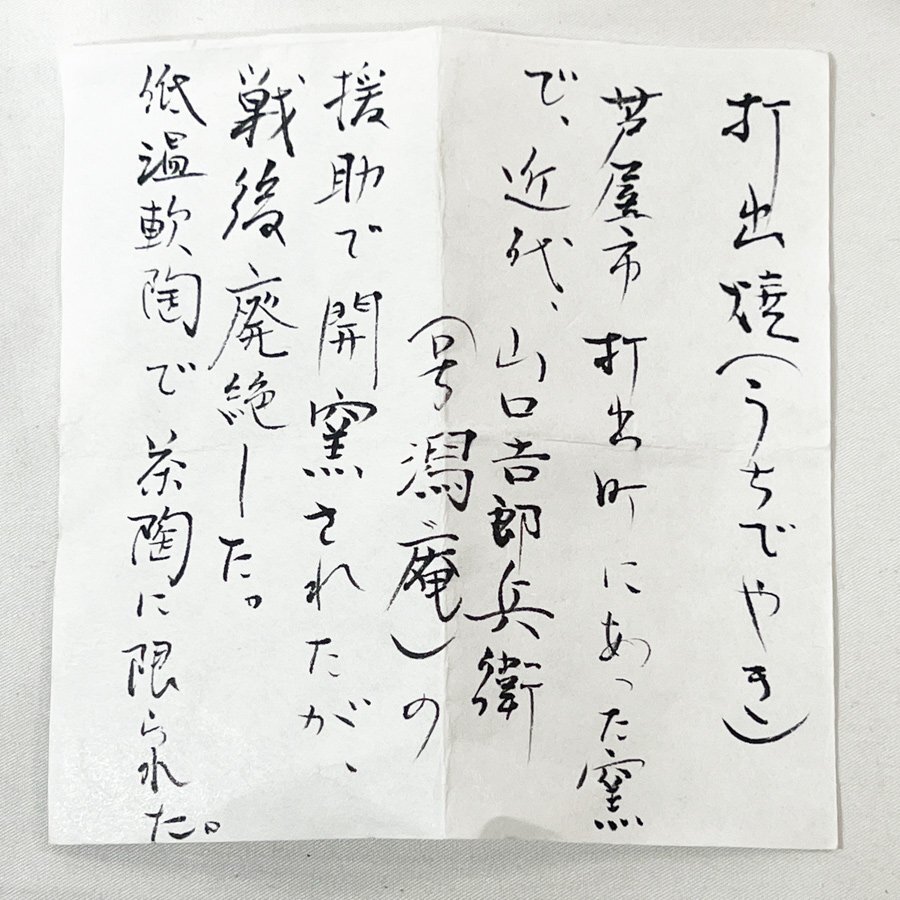 打出焼(うちでやき)
芦屋市打出町にあった窯
で、近代、山口吉郎兵衛
(号潟庵)の
援助で開窯されたが、
戦後廃絶した。
低温軟陶で茶陶に限られた。